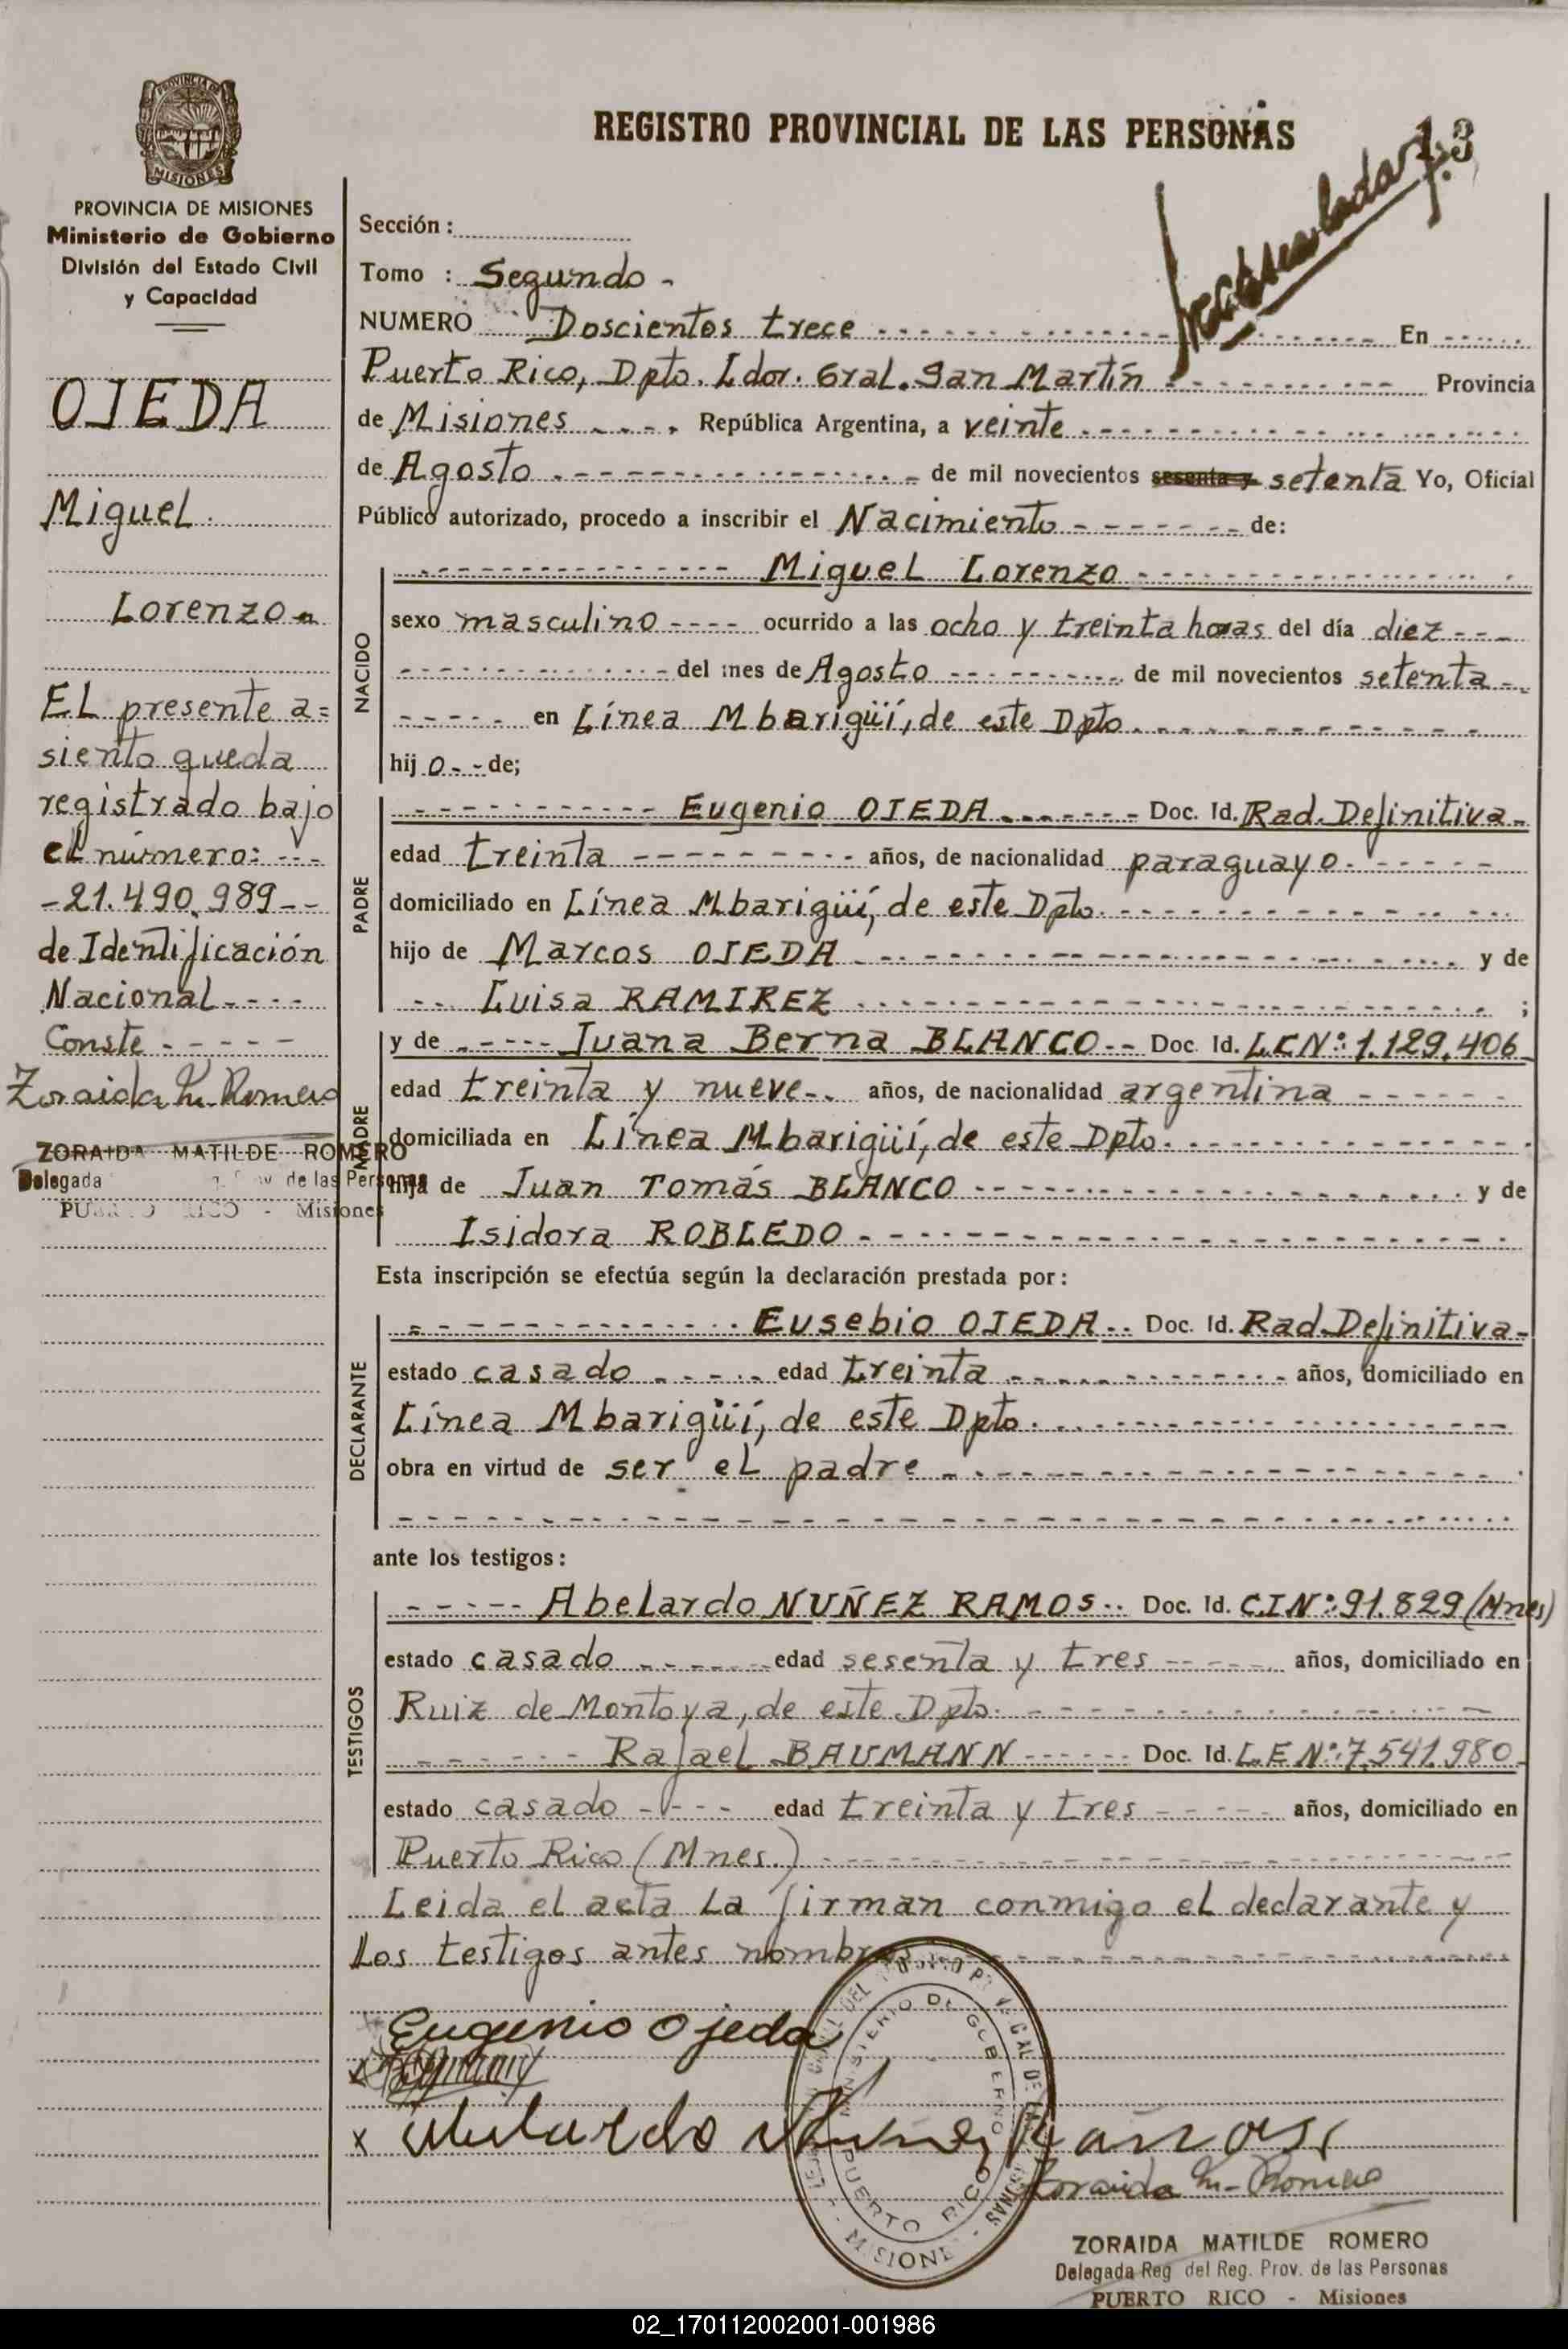 REGISTRO PROVINCIAL DE LAS PERSONAS
13
PROVINCIA DE MISIONES
MISIONES
PROVINCIA DE MISIONES
Ministerio de Gobierno
División del Estado Civil
y Capacidad
OJEDA
Miguel
Lorenzo
El presente a=
siento queda
registrado bajo
el número:
-21.490.989--
de Identificación
Nacional
Conste
Zoraida M. Romero
ZORAIDA MATILDE ROMERO
Delegada de las Personas
Misiones
Sección:
Tomo : Segundo -
NUMERO Doscientos trece En
Puerto Rico, Dpto. Ldor. Gral. San Martín Provincia
de Misiones República Argentina, a veinte
de Agosto de mil novecientos sesenta y setenta Yo, Oficial
Público autorizado, procedo a inscribir el Nacimiento de:
NACIDO
Miguel Lorenzo
sexo masculino ocurrido a las ocho y treinta horas del día diez
del mes de Agosto de mil novecientos setenta
en Línea Mbarigüí, de este Dpto.
hij o de;
PADRE
Eugenio OJEDA Doc. Id. Rad. Definitiva
edad treinta años, de nacionalidad paraguayo
domiciliado en Línea Mbarigüí, de este Dpto.
hijo de Marcos OJEDA y de
Luisa RAMIREZ ;
MADRE
y de Juana Berna BLANCO Doc. Id. L.C Nº: 1.129.406
edad treinta y nueve años, de nacionalidad argentina
domiciliada en Línea Mbarigüí, de este Dpto.
hija de Juan Tomás BLANCO y de
Isidora ROBLEDO
Esta inscripción se efectúa según la declaración prestada por:
DECLARANTE
Eusebio OJEDA Doc. Id. Rad. Definitiva
estado casado edad treinta años, domiciliado en
Línea Mbarigüí, de este Dpto.
obra en virtud de ser el padre
ante los testigos:
TESTIGOS
Abelardo NUÑEZ RAMOS Doc. Id. C.I Nº: 91.829 (Mnes)
estado casado edad sesenta y tres años, domiciliado en
Ruiz de Montoya, de este Dpto.
Rafael BAUMANN Doc. Id. L.E Nº: 7.541.980
estado casado edad treinta y tres años, domiciliado en
Puerto Rico (Mnes.)
Leida el acta la firman conmigo el declarante y
los testigos antes nombra
Eugenio Ojeda
x
Zoraida M. Romero
MINISTERIO DE GOBIERNO
PUERTO RICO
ZORAIDA MATILDE ROMERO
Delegada Reg del Reg. Prov. de las Personas
PUERTO RICO - Misiones
02_170112002001-001986